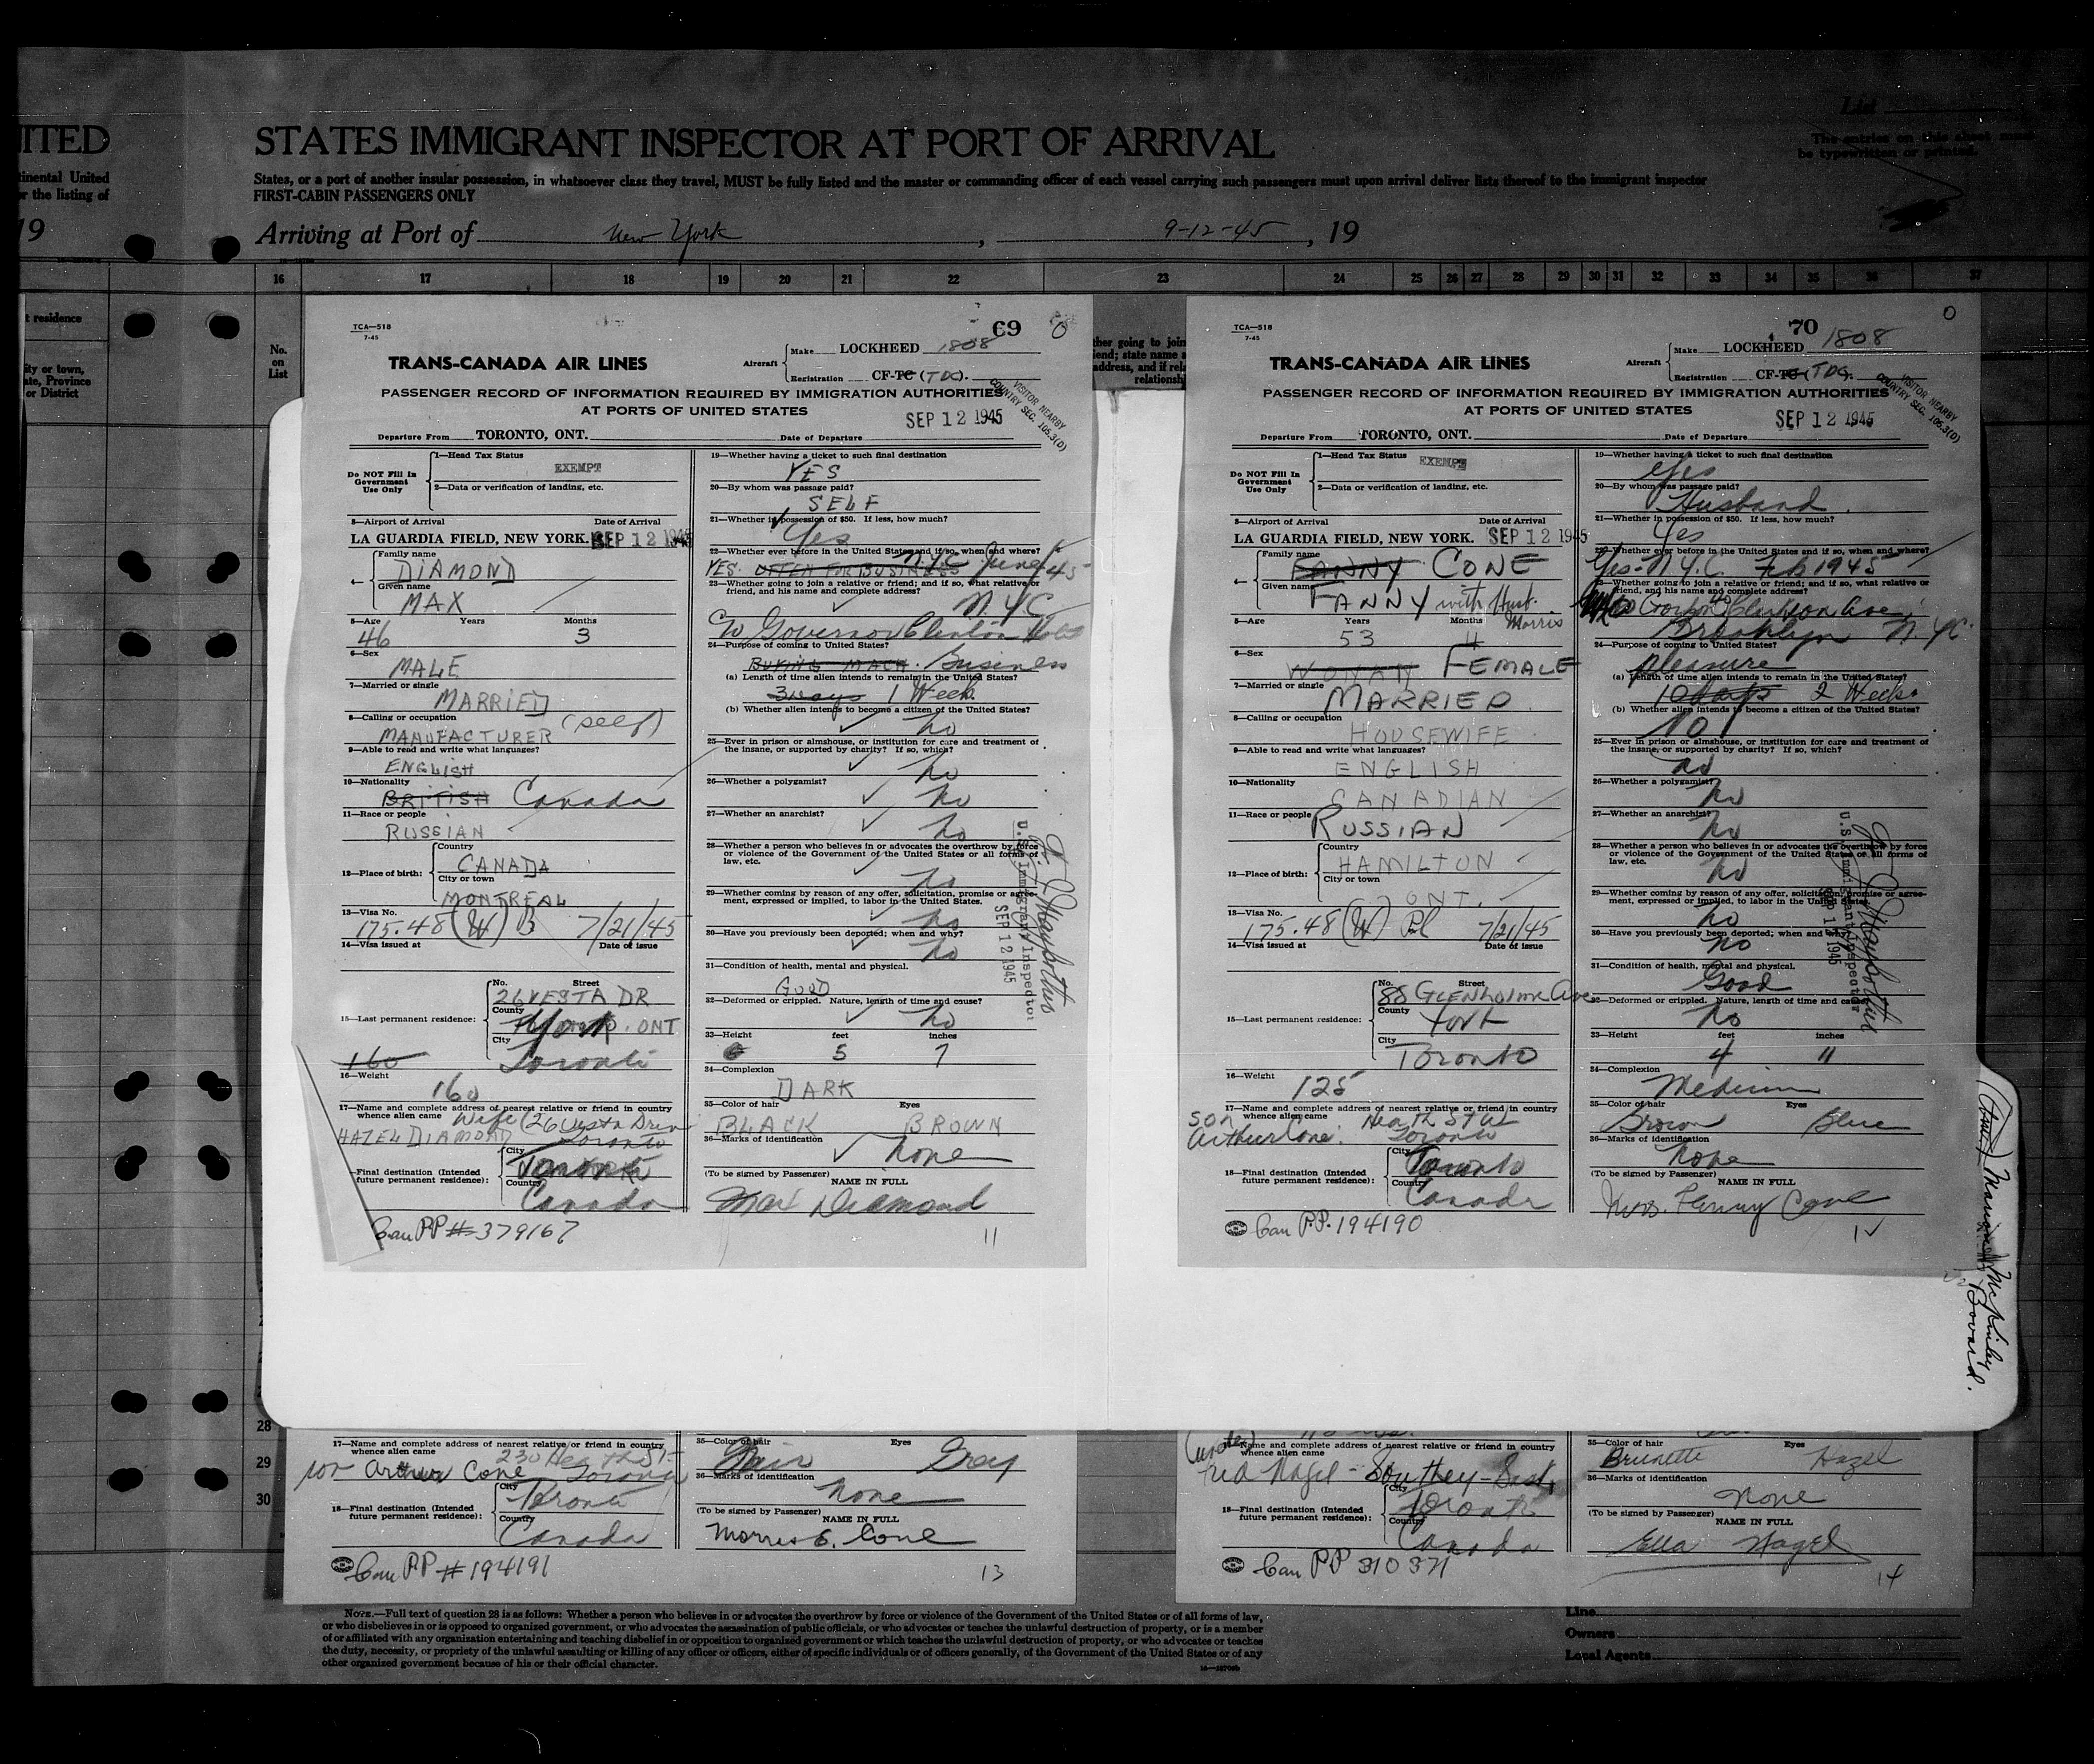 ITED
tinental United
r the listing of
19
t residence
ity or town,
ate, Province
or District
List
The entries on this sheet must
be typewritten or printed.
STATES IMMIGRANT INSPECTOR AT PORT OF ARRIVAL
States, or a port of another insular possession, in whatsoever class they travel, MUST be fully listed and the master or commanding officer of each vessel carrying such passengers must upon arrival deliver lists thereof to the immigrant inspector
FIRST-CABIN PASSENGERS ONLY
Arriving at Port of New York, 9-12-45, 19
16 17 18 19 20 21 22 23 24 25 26 27 28 29 30 31 32 33 34 35 36 37
No.
on
List
ther going to join
iend; state name a
address, and if rel
relationsh
TCA—518
7-45
69 0
TRANS-CANADA AIR LINES
Aircraft
Make LOCKHEED 1808
Registration CF-TC (TDC).
PASSENGER RECORD OF INFORMATION REQUIRED BY IMMIGRATION AUTHORITIES
AT PORTS OF UNITED STATES
VISITOR NEARBY
COUNTRY SEC. 105.3(D)
SEP 12 1945
Departure From TORONTO, ONT. Date of Departure
Do NOT Fill In
Government
Use Only
1—Head Tax Status EXEMPT
2—Data or verification of landing, etc.
3—Airport of Arrival Date of Arrival
LA GUARDIA FIELD, NEW YORK. SEP 12 1945
4— Family name
DIAMOND
Given name
MAX
5—Age Years Months
46 3
6—Sex
MALE
7—Married or single
MARRIED
8—Calling or occupation
MANUFACTURER (self)
9—Able to read and write what languages?
ENGLISH
10—Nationality
BRITISH Canada
11—Race or people
RUSSIAN
12—Place of birth:
Country
CANADA
City or town
MONTREAL
13—Visa No.
175.48 (W) B 7/21/45
14—Visa issued at Date of issue
15—Last permanent residence:
No. Street
26 VESTA DR
County
York ONT
City
Toronto
160
16—Weight
160
17—Name and complete address of nearest relative or friend in country
whence alien came Wife (26 Vesta Drive
HAZEL DIAMOND Toronto
18—Final destination (Intended
future permanent residence):
City
Toronto
Country
Canada
Can PP # 379167
19—Whether having a ticket to such final destination
YES
20—By whom was passage paid?
SELF
21—Whether in possession of $50. If less, how much?
Yes
22—Whether ever before in the United States and if so, when and where?
YES. OFTEN FOR BUSINESS N.Y.C. June/45
23—Whether going to join a relative or friend; and if so, what relative or
friend, and his name and complete address?
N.Y.C.
To Governor Clinton Hotel
24—Purpose of coming to United States?
BUYING MACH. Business
(a) Length of time alien intends to remain in the United States?
3 days 1 Week
(b) Whether alien intends to become a citizen of the United States?
no
25—Ever in prison or almshouse, or institution for care and treatment of
the insane, or supported by charity? If so, which?
no
26—Whether a polygamist?
no
27—Whether an anarchist?
no
28—Whether a person who believes in or advocates the overthrow by force
or violence of the Government of the United States or all forms of
law, etc.
no
29—Whether coming by reason of any offer, solicitation, promise or agree-
ment, expressed or implied, to labor in the United States.
no
30—Have you previously been deported; when and why?
no
31—Condition of health, mental and physical.
GOOD
32—Deformed or crippled. Nature, length of time and cause?
no
33—Height feet inches
5 7
34—Complexion
DARK
35—Color of hair Eyes
BLACK BROWN
36—Marks of identification
none
(To be signed by Passenger) NAME IN FULL
Max Diamond
11
U.S. Immigrant Inspector
SEP 12 1945
TCA—518
7-45
70 0
TRANS-CANADA AIR LINES
Aircraft
Make LOCKHEED 1808
Registration CF-TC (TDC).
PASSENGER RECORD OF INFORMATION REQUIRED BY IMMIGRATION AUTHORITIES
AT PORTS OF UNITED STATES
VISITOR NEARBY
COUNTRY SEC. 105.3(D)
SEP 12 1945
Departure From TORONTO, ONT. Date of Departure
Do NOT Fill In
Government
Use Only
1—Head Tax Status EXEMPT
2—Data or verification of landing, etc.
3—Airport of Arrival Date of Arrival
LA GUARDIA FIELD, NEW YORK. SEP 12 1945
4— Family name
FANNY CONE
Given name
FANNY with Hust.
Morris
5—Age Years Months
53 4
6—Sex
WOMAN FEMALE
7—Married or single
MARRIED
8—Calling or occupation
HOUSEWIFE
9—Able to read and write what languages?
ENGLISH
10—Nationality
CANADIAN
11—Race or people
RUSSIAN
12—Place of birth:
Country
HAMILTON
City or town
ONT.
13—Visa No.
175.48 (W) Pl 7/21/45
14—Visa issued at Date of issue
15—Last permanent residence:
No. Street
88 GLENHOLME Ave
County
York
City
Toronto
16—Weight
125
17—Name and complete address of nearest relative or friend in country
whence alien came
son Heath St W
Arthur Cone. Toronto
18—Final destination (Intended
future permanent residence):
City
Toronto
Country
Canada
Can P.P. 194190
19—Whether having a ticket to such final destination
Yes
20—By whom was passage paid?
Husband.
21—Whether in possession of $50. If less, how much?
Yes
22—Whether ever before in the United States and if so, when and where?
Yes-N.Y.C. Feb 1945
23—Whether going to join a relative or friend; and if so, what relative or
friend, and his name and complete address?
40 Clarkson Ave,
Brooklyn N.Y.C.
24—Purpose of coming to United States?
pleasure
(a) Length of time alien intends to remain in the United States?
10 days 2 Weeks
(b) Whether alien intends to become a citizen of the United States?
NO
25—Ever in prison or almshouse, or institution for care and treatment of
the insane, or supported by charity? If so, which?
no
26—Whether a polygamist?
no
27—Whether an anarchist?
no
28—Whether a person who believes in or advocates the overthrow by force
or violence of the Government of the United States or all forms of
law, etc.
no
29—Whether coming by reason of any offer, solicitation, promise or agree-
ment, expressed or implied, to labor in the United States.
no
30—Have you previously been deported; when and why?
no
31—Condition of health, mental and physical.
Good
32—Deformed or crippled. Nature, length of time and cause?
no
33—Height feet inches
4 11
34—Complexion
Medium
35—Color of hair Eyes
Brown Blue
36—Marks of identification
none
(To be signed by Passenger) NAME IN FULL
Mrs. Fanny Cone
12
U.S. Immigrant Inspector
SEP 12 1945
(Aunt) Marion McKinley
Bovard.
28
29
30
17—Name and complete address of nearest relative or friend in country
whence alien came 230 Heath St
son Arthur Cone Toronto
18—Final destination (Intended
future permanent residence):
City
Toronto
Country
Canada
Can PP # 194191
35—Color of hair Eyes
Fair Gray
36—Marks of identification
none
(To be signed by Passenger) NAME IN FULL
Morris C. Cone
13
17—Name and complete address of nearest relative or friend in country
whence alien came
Nagel - Southey-Sask,
18—Final destination (Intended
future permanent residence):
City
Toronto
Country
Canada
Can PP 310371
35—Color of hair Eyes
Brunette Hazel
36—Marks of identification
none
(To be signed by Passenger) NAME IN FULL
Ella Nagel
14
NOTE.—Full text of question 28 is as follows: Whether a person who believes in or advocates the overthrow by force or violence of the Government of the United States or of all forms of law,
or who disbelieves in or is opposed to organized government, or who advocates the assassination of public officials, or who advocates or teaches the unlawful destruction of property, or is a member
of or affiliated with any organization entertaining and teaching disbelief in or opposition to organized government or which teaches the unlawful destruction of property, or who advocates or teaches
the duty, necessity, or propriety of the unlawful assaulting or killing of any officer or officers, either of specific individuals or of officers generally, of the Government of the United States or of any
other organized government because of his or their official character.
Line
Owners
Local Agents